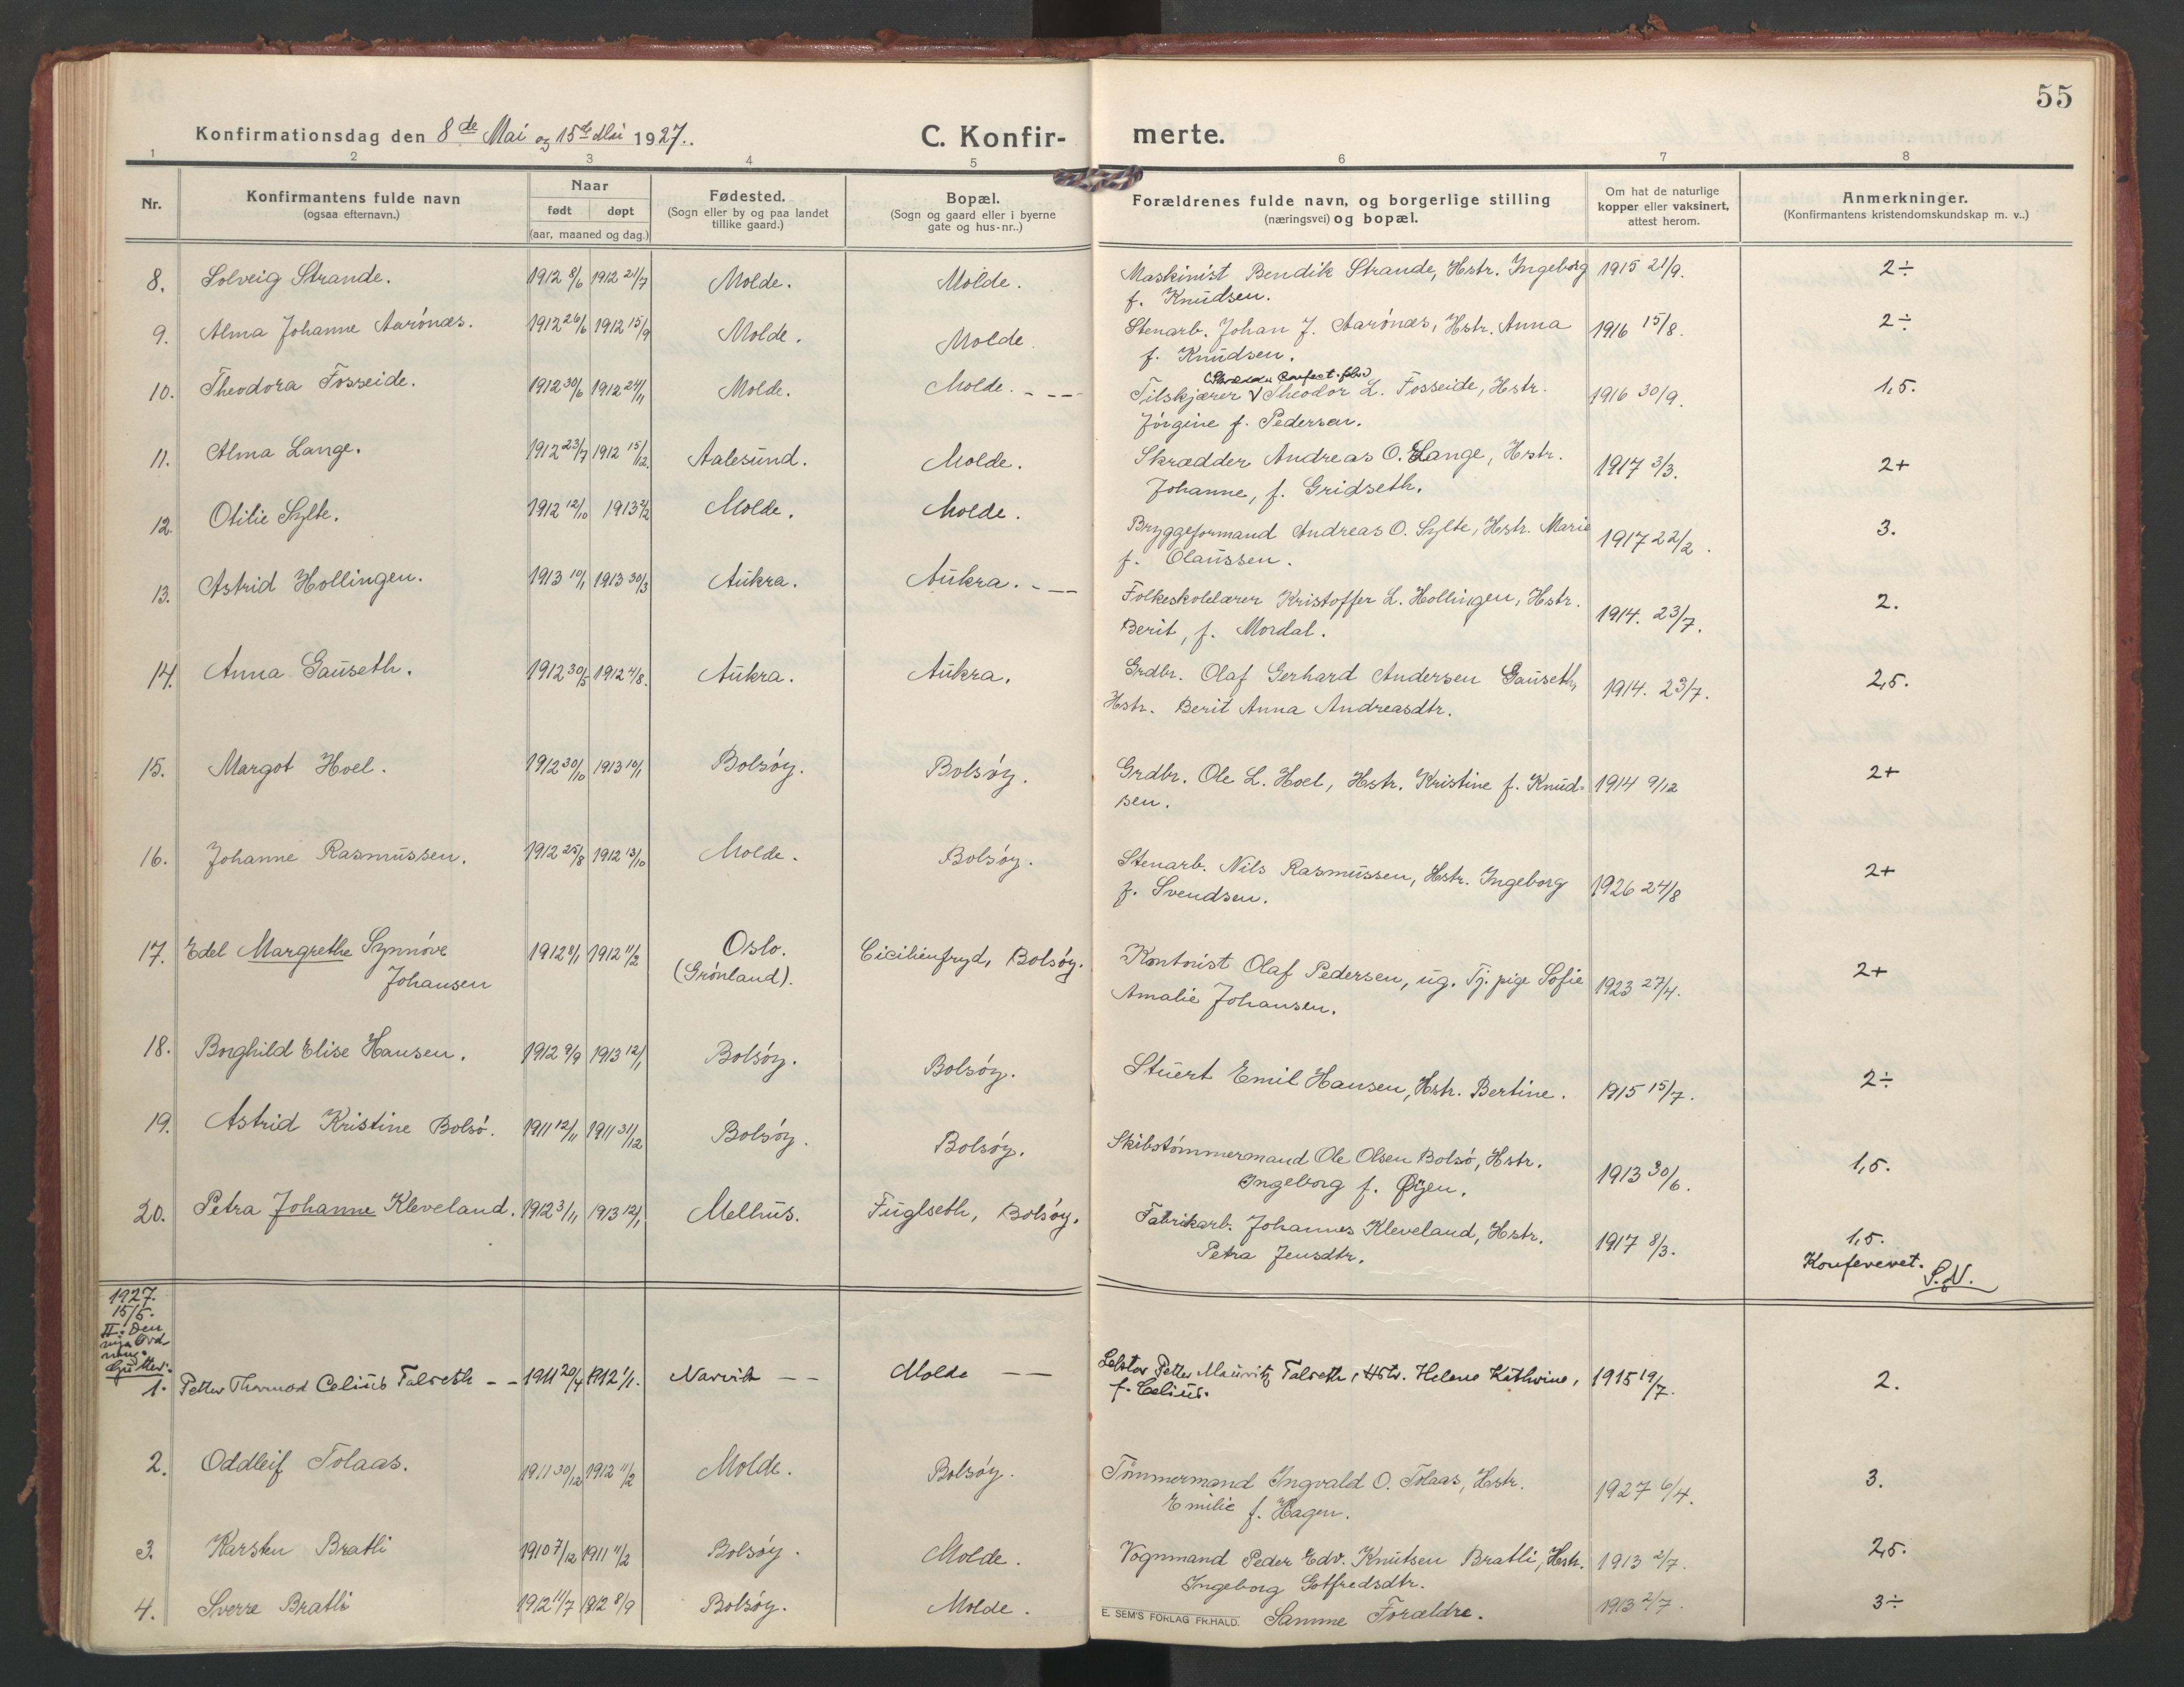 55
Konfirmationsdag den 8de Mai og 15de Mai 1927.
C. Konfir-
merte.
1 2 3 4 5 6 7 8
Nr.
Konfirmantens fulde navn
(ogsaa efternavn.)
Naar
født døpt
(aar, maaned og dag.)
Fødested.
(Sogn eller by og paa landet
tillike gaard.)
Bopæl.
(Sogn og gaard eller i byerne
gate og hus-nr..)
Forældrenes fulde navn, og borgerlige stilling
(næringsvei) og bopæl.
Om hat de naturlige
kopper eller vaksinert,
attest herom.
Anmerkninger.
(Konfirmantens kristendomskundskap m. v..)
8. Solveig Strande. 1912 8/6 1912 21/7 Molde. Molde. Maskinist Bendik Strande, Hstr. Ingeborg 1915 21/9. 2÷
f. Knudsen.
9. Alma Johanne Aarönæs. 1912 26/6 1912 15/9 Molde. Molde. Stenarb. Johan J. Aarönæs, Hstr. Anna 1916 15/8. 2÷
f. Knudsen.
10. Theodora Fosseide. 1912 30/6 1912 24/11 Molde. Molde. - - - Tilskjærer Theodor L. Fosseide, Hstr. 1916 30/9. 1,5.
Jörgine f. Pedersen.
11. Alma Lange. 1912 23/7 1912 15/12. Aalesund. Molde. Skrædder Andreas O. Lange, Hstr. 1917 3/3. 2+
Johanne, f. Gridseth.
12. Otilie Sylte. 1912 12/10 1913 2/2 Molde. Molde. Bryggeformand Andreas O. Sylte, Hstr. Marie 1917 22/2. 3.
f. Olaussen.
13. Astrid Hollingen. 1913 10/1 1913 30/3 Aukra. Aukra. - - - Folkeskolelærer Kristoffer L. Hollingen, Hstr. 1914. 23/7. 2.
Berit, f. Mordal.
14. Anna Gauseth. 1912 30/5 1912 4/8. Aukra. Aukra. Grdbr. Olaf Gerhard Andersen Gauseth, 1914. 23/7. 2,5.
Hstr. Berit Anna Andreasdtr.
15. Margot Hoel. 1912 30/10 1913 10/1 Bolsöy. Bolsöy. Grdbr. Ole L. Hoel, Hstr. Kristine f. Knud= 1914 9/12 2+
sen.
16. Johanne Rasmussen. 1912 25/8 1912 13/10 Molde. Bolsöy. Stenarb. Nils Rasmussen, Hstr. Ingeborg 1926 24/8 2+
f. Svendsen.
17. Edel Margrethe Synnöve 1912 8/1 1912 11/2 Oslo. Cicilienfryd, Bolsöy. Kontorist Olaf Pedersen, ug. Tj. pige Sofie 1923 27/4. 2+
Johansen (Grönland). Amalie Johansen.
18. Borghild Elise Hansen. 1912 9/9 1913 12/1 Bolsöy. Bolsöy. Stuert Emil Hansen, Hstr. Bertine. 1915 15/7. 2÷
19. Astrid Kristine Bolsö. 1911 12/11 1911 31/12 Bolsöy. Bolsöy. Skibstömmermand Ole Olsen Bolsö, Hstr. 1913 30/6. 1,5.
Ingeborg f. Øyen.
20. Petra Johanne Kleveland. 1912 3/11 1913 12/1 Melhus. Fuglseth, Bolsöy. Fabrikarb. Johannes Kleveland, Hstr. 1917 8/3. 1,5.
Petra Jensdtr. Konfereret. S.N.
1927.
15/5.
II: Den
nye Ord-
ning.
Gutter:
1. Petter Thormod Celius Talseth - - 1911 20/4 1912 1/1. Narvik - - Molde - - Petter Mauritz Talseth, Hstr. Helene Kathrine, 1915 19/7. 2.
f. Celius.
2. Oddleif Tolaas. 1911 30/12 1912 11/2 Molde. Bolsöy. Tömmermand Ingvald O. Tolaas, Hstr. 1927 6/4. 3.
Emilie f. Hagen.
3. Karsten Bratli 1910 7/12 1911 11/2 Bolsöy. Molde. Vognmand Peder Edv. Knutsen Bratli, Hstr. 1913 2/7. 2,5.
Ingeborg Gotfredsdtr.
4. Sverre Bratli 1912 11/7 1912 8/9 Bolsöy. Molde. Samme Forældre. 1913 2/7. 3÷
E. SEM'S FORLAG FR.HALD.